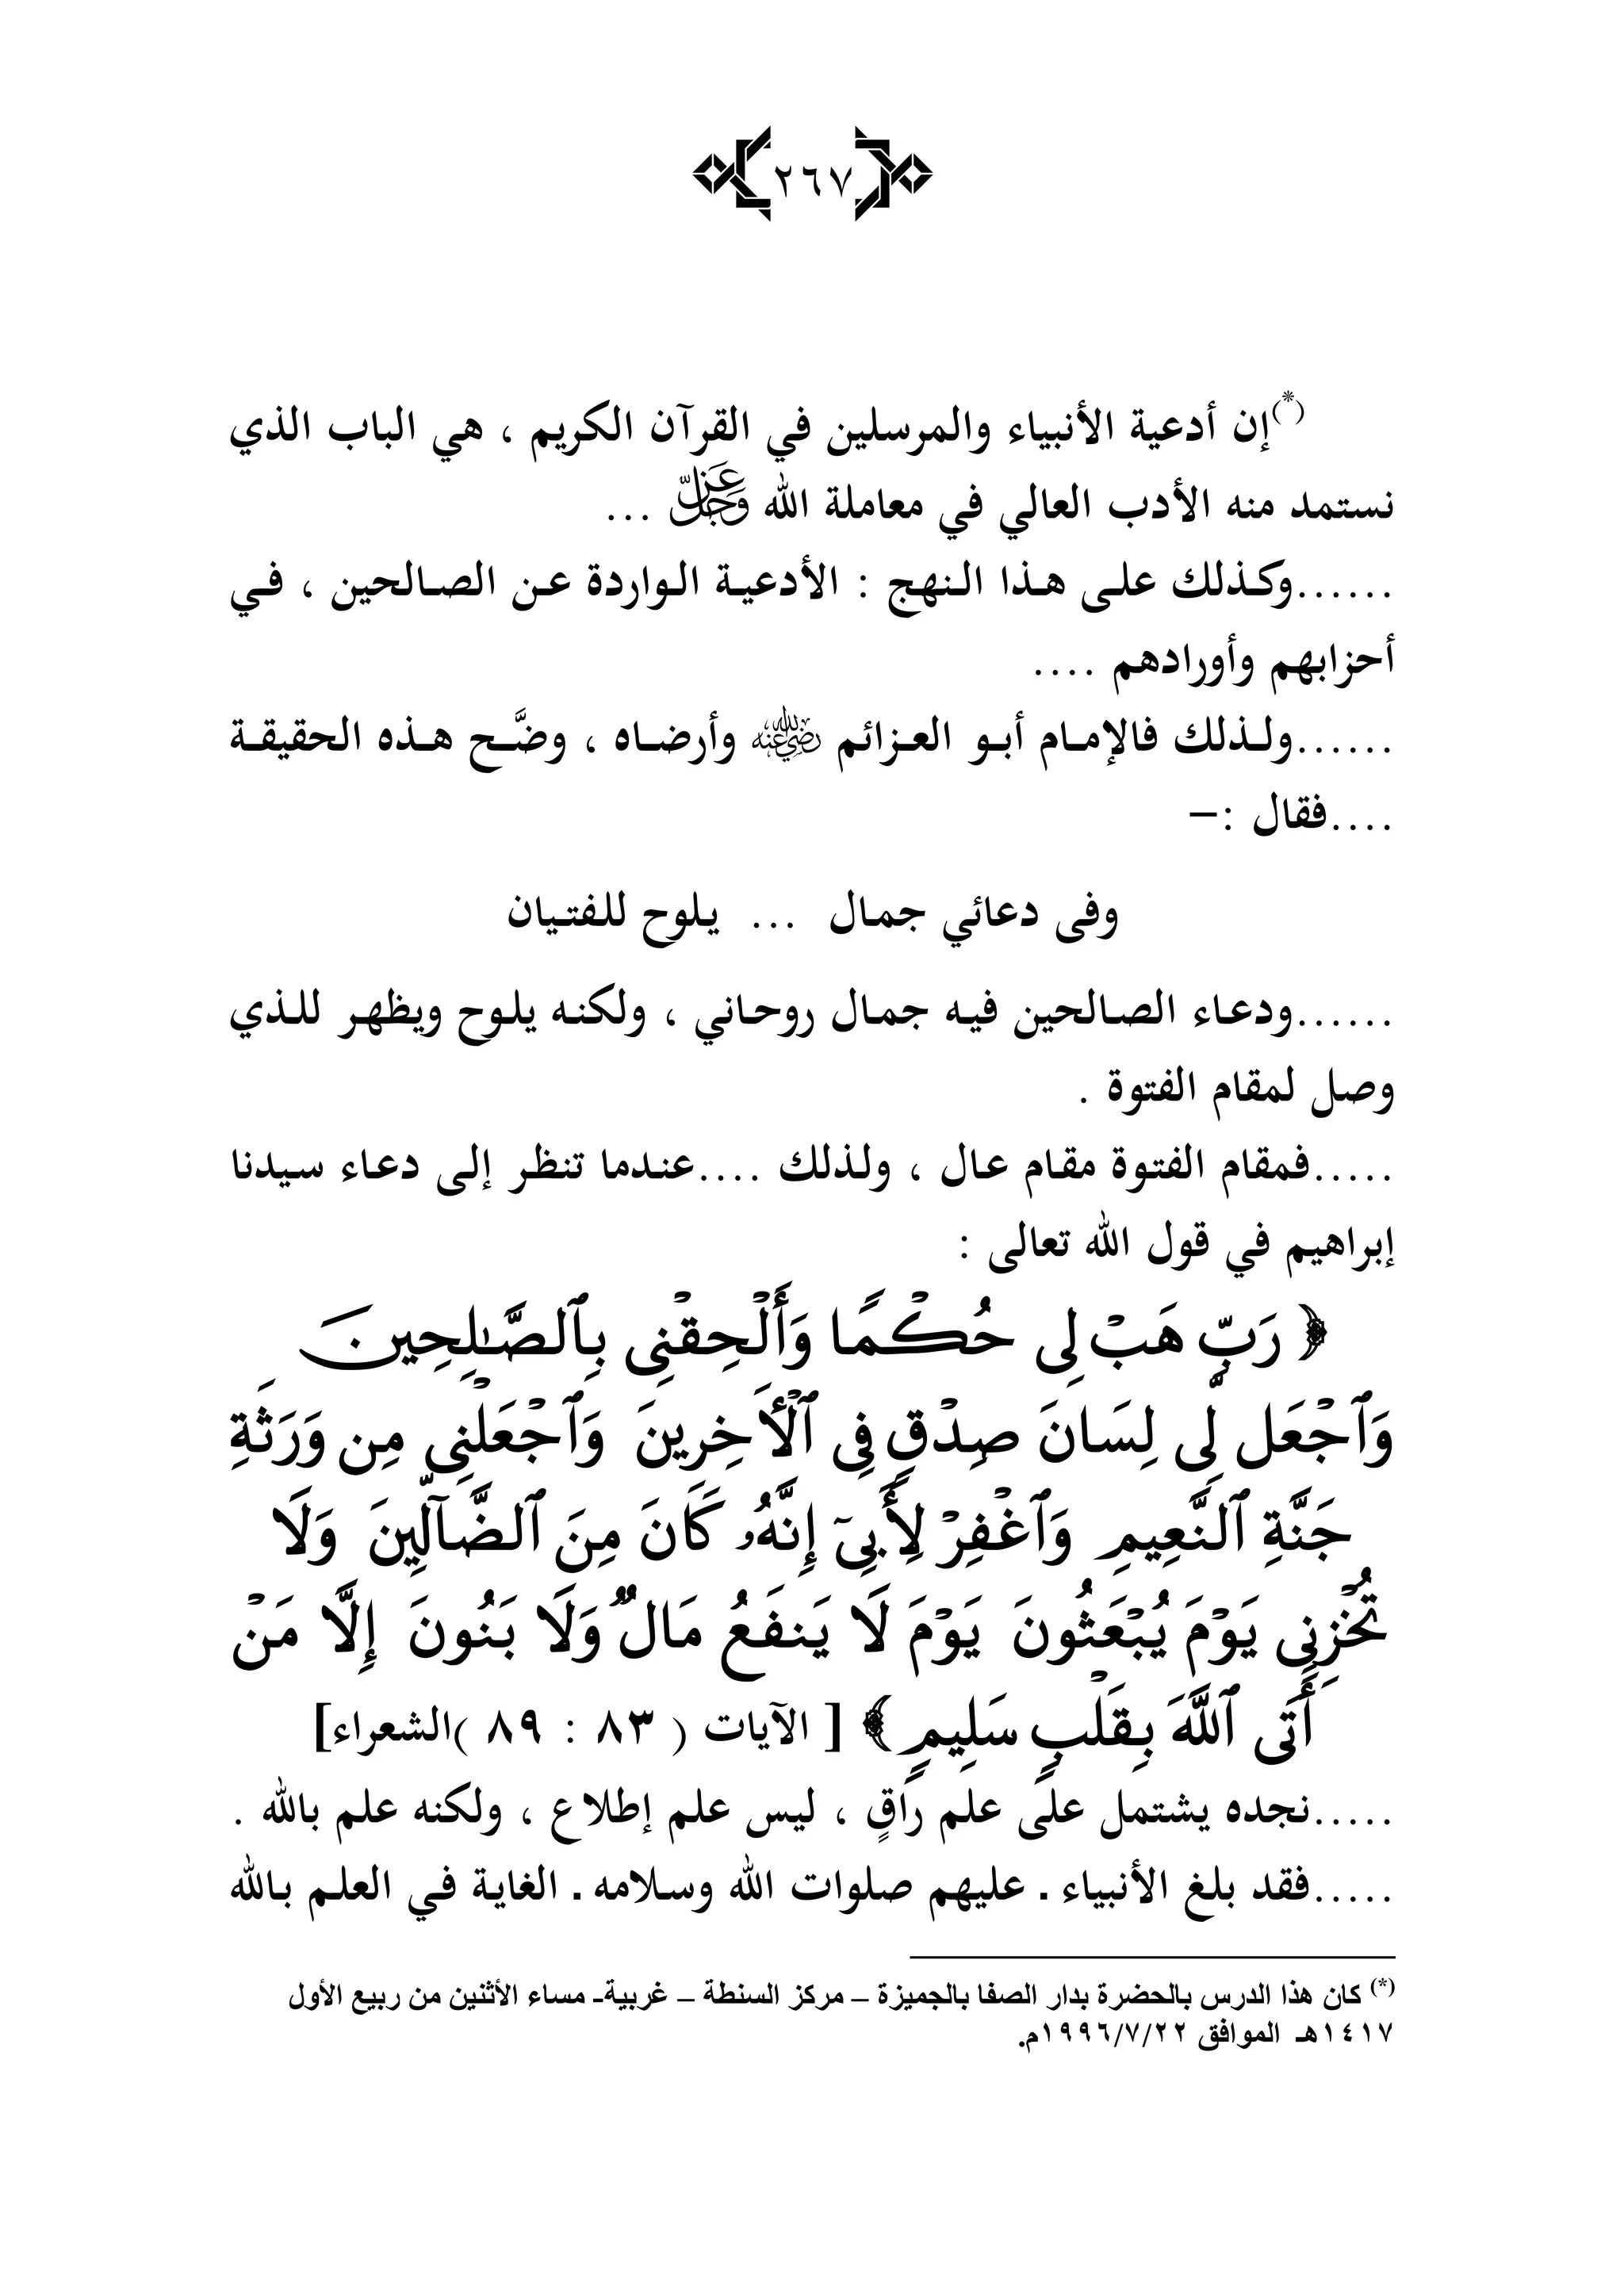 ٢٦٧
(*)إن أدعية الأنبياء والمرسلين في القرآن الكريم ، هي الباب الذي
نستمد منه الأدب العالي في معاملة الله عَزَّ وَجَلَّ ...
......وكذلك على هذا النهج : الأدعية الواردة عن الصالحين ، في
أحزابهم وأورادهم ....
......ولذلك فالإمام أبو العزائم رضي الله عنه وأرضاه ، وضَّح هذه الحقيقة
....فقال :–
وفى دعائي جمال ... يلوح للفتيان
......ودعاء الصالحين فيه جمال روحاني ، ولكنه يلوح ويظهر للذي
وصل لمقام الفتوة .
.....فمقام الفتوة مقام عال ، ولذلك ....عندما تنظر إلى دعاء سيدنا
إبراهيم في قول الله تعالى :
﴿ رَبِّ هَبۡ لِى حُكۡمًا وَأَلۡحِقۡنِى بِٱلصَّـٰلِحِينَ
وَٱجۡعَل لِّى لِسَانَ صِدۡقٍ فِى ٱلۡأَخِرِينَ وَٱجۡعَلۡنِى مِن وَرَثَةِ
جَنَّةِ ٱلنَّعِيمِ وَٱغۡفِرۡ لِأَبِىٓ إِنَّهُۥ كَانَ مِنَ ٱلضَّآلِّينَ وَلَا
تُخۡزِنِى يَوۡمَ يُبۡعَثُونَ يَوۡمَ لَا يَنفَعُ مَالٌ وَلَا بَنُونَ إِلَّا مَنۡ
أَتَى ٱللَّهَ بِقَلۡبٍ سَلِيمٍ ﴾ [ الآيات ( ٨٣ : ٨٩ )الشعراء]
.....نجده يشتمل على علم راقٍ ، ليس علم إطلاع ، ولكنه علم بالله .
.....فقد بلغ الأنبياء . عليهم صلوات الله وسلامه . الغاية في العلم بالله
(*) كان هذا الدرس بالحضرة بدار الصفا بالجميزة – مركز السنطة – غربية- مساء الأثنين من ربيع الأول
١٤١٧هـ الموافق ٢٢/٧/١٩٩٦م.